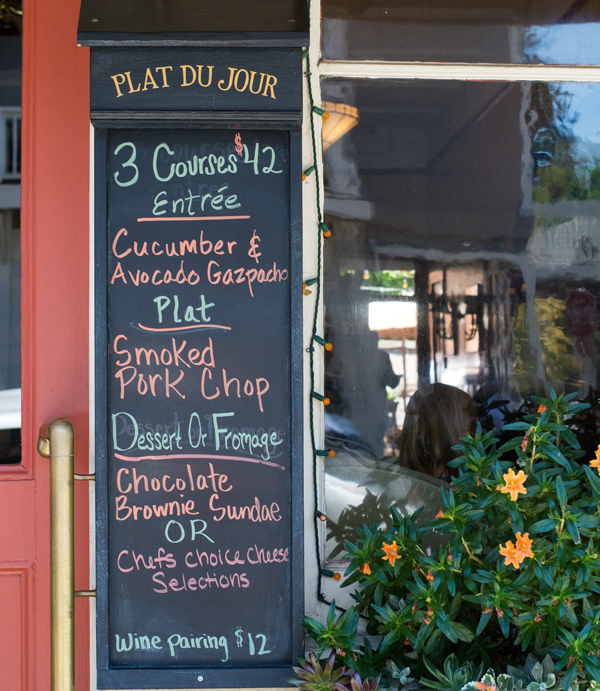 PLAT DU JOUR
3 Courses $42
Entrée
Cucumber &
Avocado Gazpacho
Plat
Smoked
Pork Chop
Dessert Or Fromage
Chocolate
Brownie Sundae
OR
Chefs choice cheese
Selections
Wine pairing $12